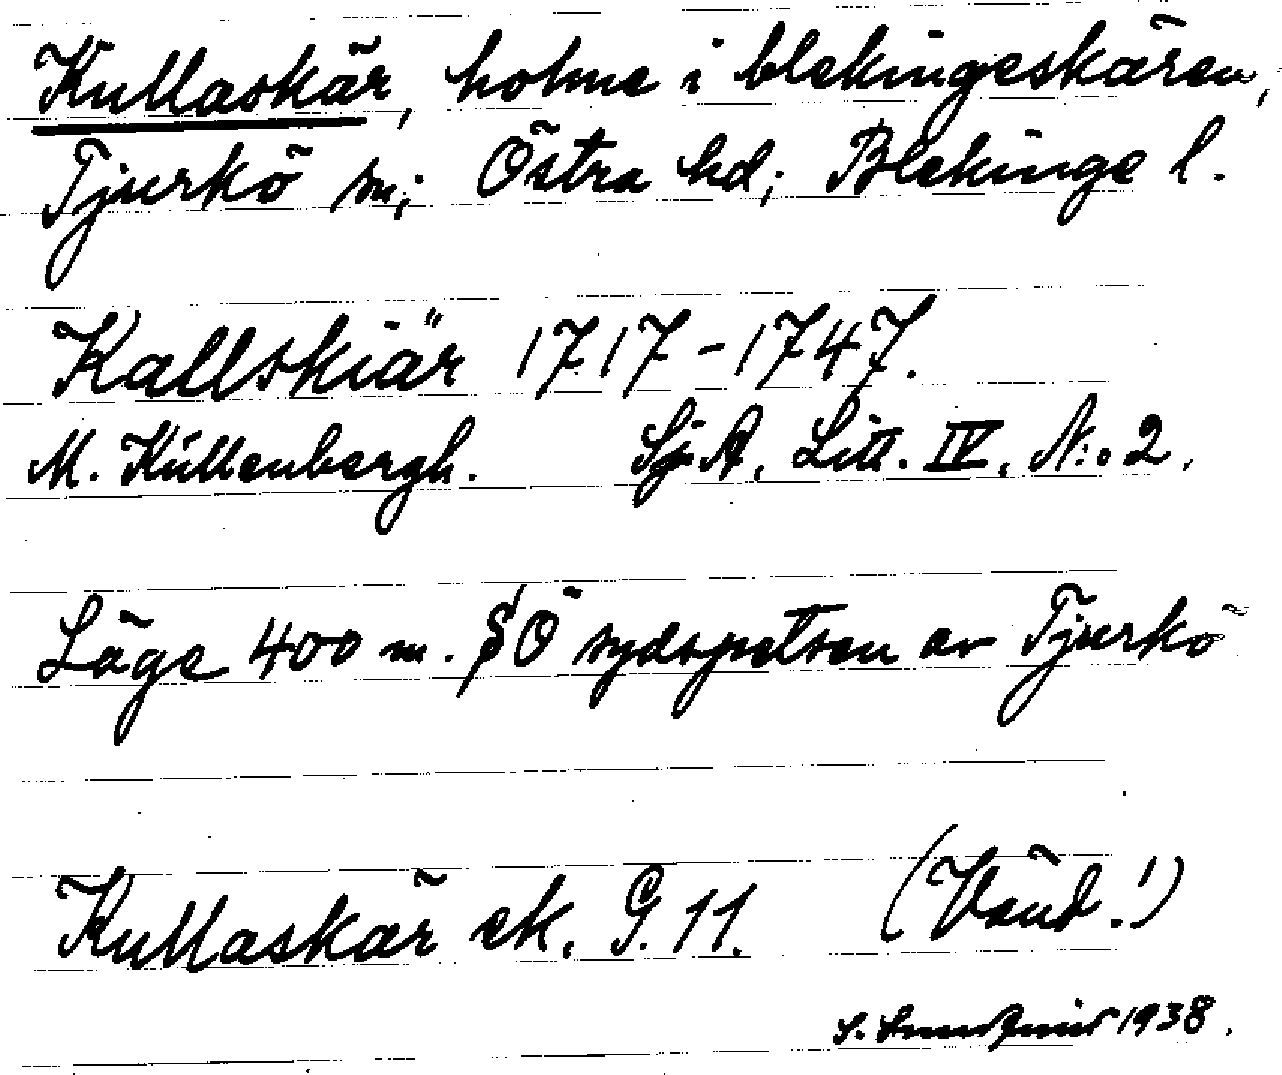 Kullaskär, holme i blekingeskären,
Tjurkö sn; Östra hd; Blekinge l.
Kallskiär 1717-1747.
M. Küllenbergh. Sj. A, Litt. IV, N:o 2.
Läge 400 m. SÖ sydspetsen av Tjurkö
Kullaskär ek. G. 11. (Vänd!)
S. 1938.